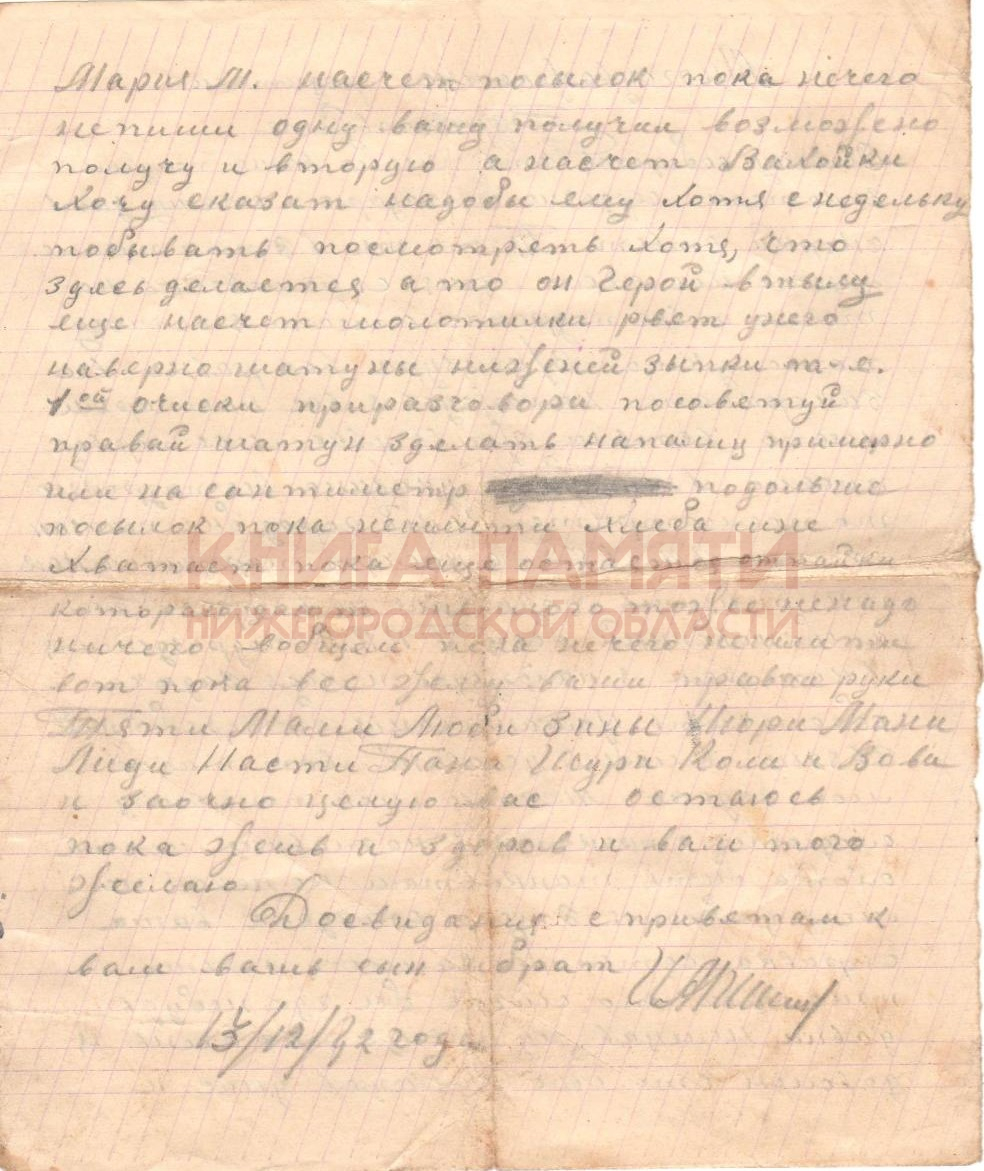 Мария М. насчет посылок пока нечего
непиши одну вашу получил возможено
получу и вторую а насчет Вахойки
Хочу сказат надобы ему хотя снедельку
побывать посмотреть хотя, что
здесь делается а то он Герой втылу
еще насчет молотилки рвет унего
наверно шатуны нижней зыпки т-е.
1ой очиски приразговори посоветуй
правай шатун зделать напалиц примерно
или на сантиметр подольше
посылок пока непошлити Хлеба мне
Хватает пока еще остается отпайки
которого дают тоже ненадо
ничего вобщем пока нечего
вот пока все жму ваши правай руки
Тяти Мами Люби Зины Нюри Мани
Лиди Насти Тана Шури Коли и Вова
и заочно целую вас остаюсь
пока жив и здоров и вам того
желаю
Досвидания с приветам к
вам вашь сын брат
КНИГА ПАМЯТИ
НИЖЕГОРОДСКОЙ ОБЛАСТИ
/12/42 года